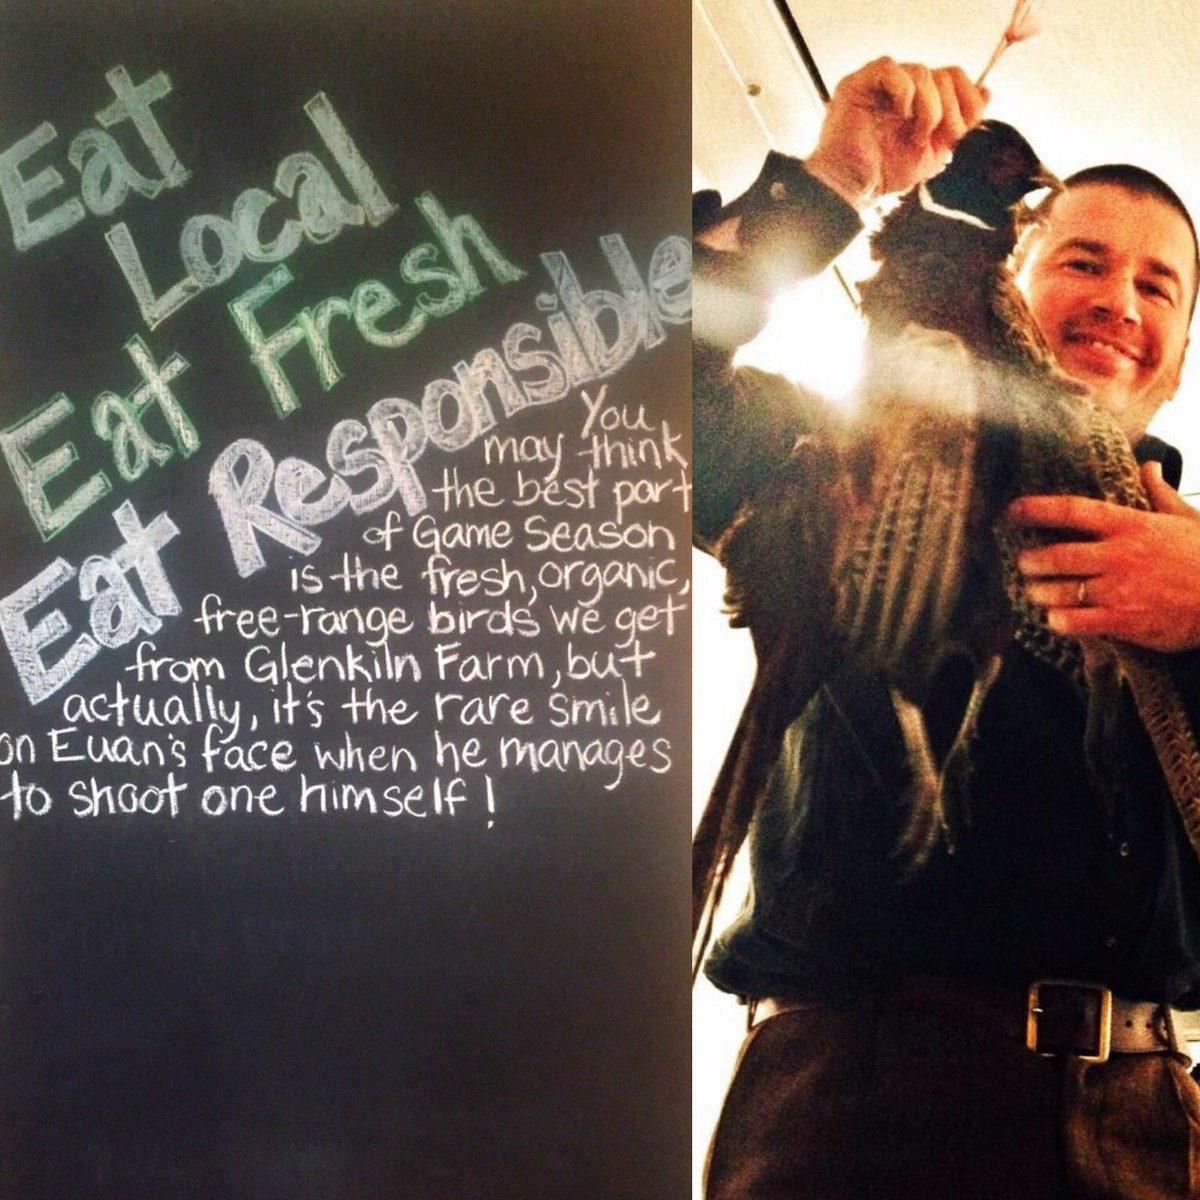 Eat
Local
Eat Fresh
Eat Responsible
You
may think
the best part
of Game Season
is the fresh, organic,
free-range birds we get
from Glenkiln Farm, but
actually, it's the rare smile
on Euan's face when he manages
to shoot one himself!